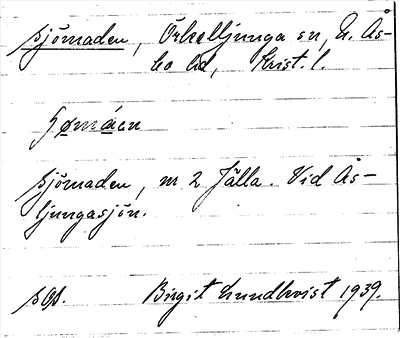 sjömaden, Örkelljunga sn, N. Ås-
bo hd, Krist. l.
sjömaden, nr 2 Fälla. Vid Ås-
ljungasjön.
sgs. Birgit Lundkvist 1939.